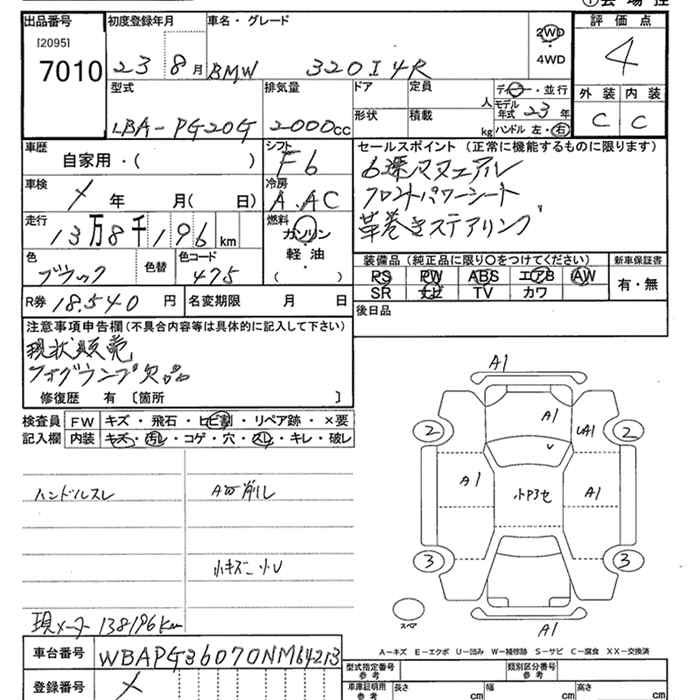 出品番号 初度登録年月 車名・グレード 評価点
[2095]
7010 23 8月 BMW 320I 4R 2WD 4WD 4
型式 排気量 ドア 定員 人 ディーラー・並行 外装 内装
LBA-PG20G 2000cc 形状 積載 kg モデル年式 23年 C C
ハンドル 左・右
車歴 シフト セールスポイント (正常に機能するものに限ります)
自家用・( ) F6 6速マニュアル
車検 冷房 フロントパワーシート
× 年 月( 日) A.AC 革巻きステアリング
走行 燃料
13万8千196km ガソリン・軽油・( )
色 色替 色コード 装備品(純正品に限り○をつけてください) 新車保証書
ブラック 475 PS PW ABS エアB AW 有・無
SR ナビ TV カワ
R券 18.540 円 名変期限 月 日 後日品
注意事項申告欄(不具合内容等は具体的に記入して下さい)
現状販売
フォグランプ欠品
修復歴 有 〔箇所 〕
検査員記入欄 FW キズ・飛石・ヒビ割・リペア跡・×要
内装 キズ・汚レ・コゲ・穴・スレ・キレ・破レ
A1
2 A1 UA1 2
A1 小P3セ A1
3 3
スペア
A1
ハンドルスレ AW削レ
小キズ 小U
現メーター 138196Km
A-キズ E-エクボ U-凹み W-補修跡 S-サビ C-腐食 XX-交換済
車台番号 WBAPG36070NM64213
型式指定番号 参考 類別区分番号 参考
登録番号 × 車庫証明用 参考 長さ cm 幅 cm 高さ cm